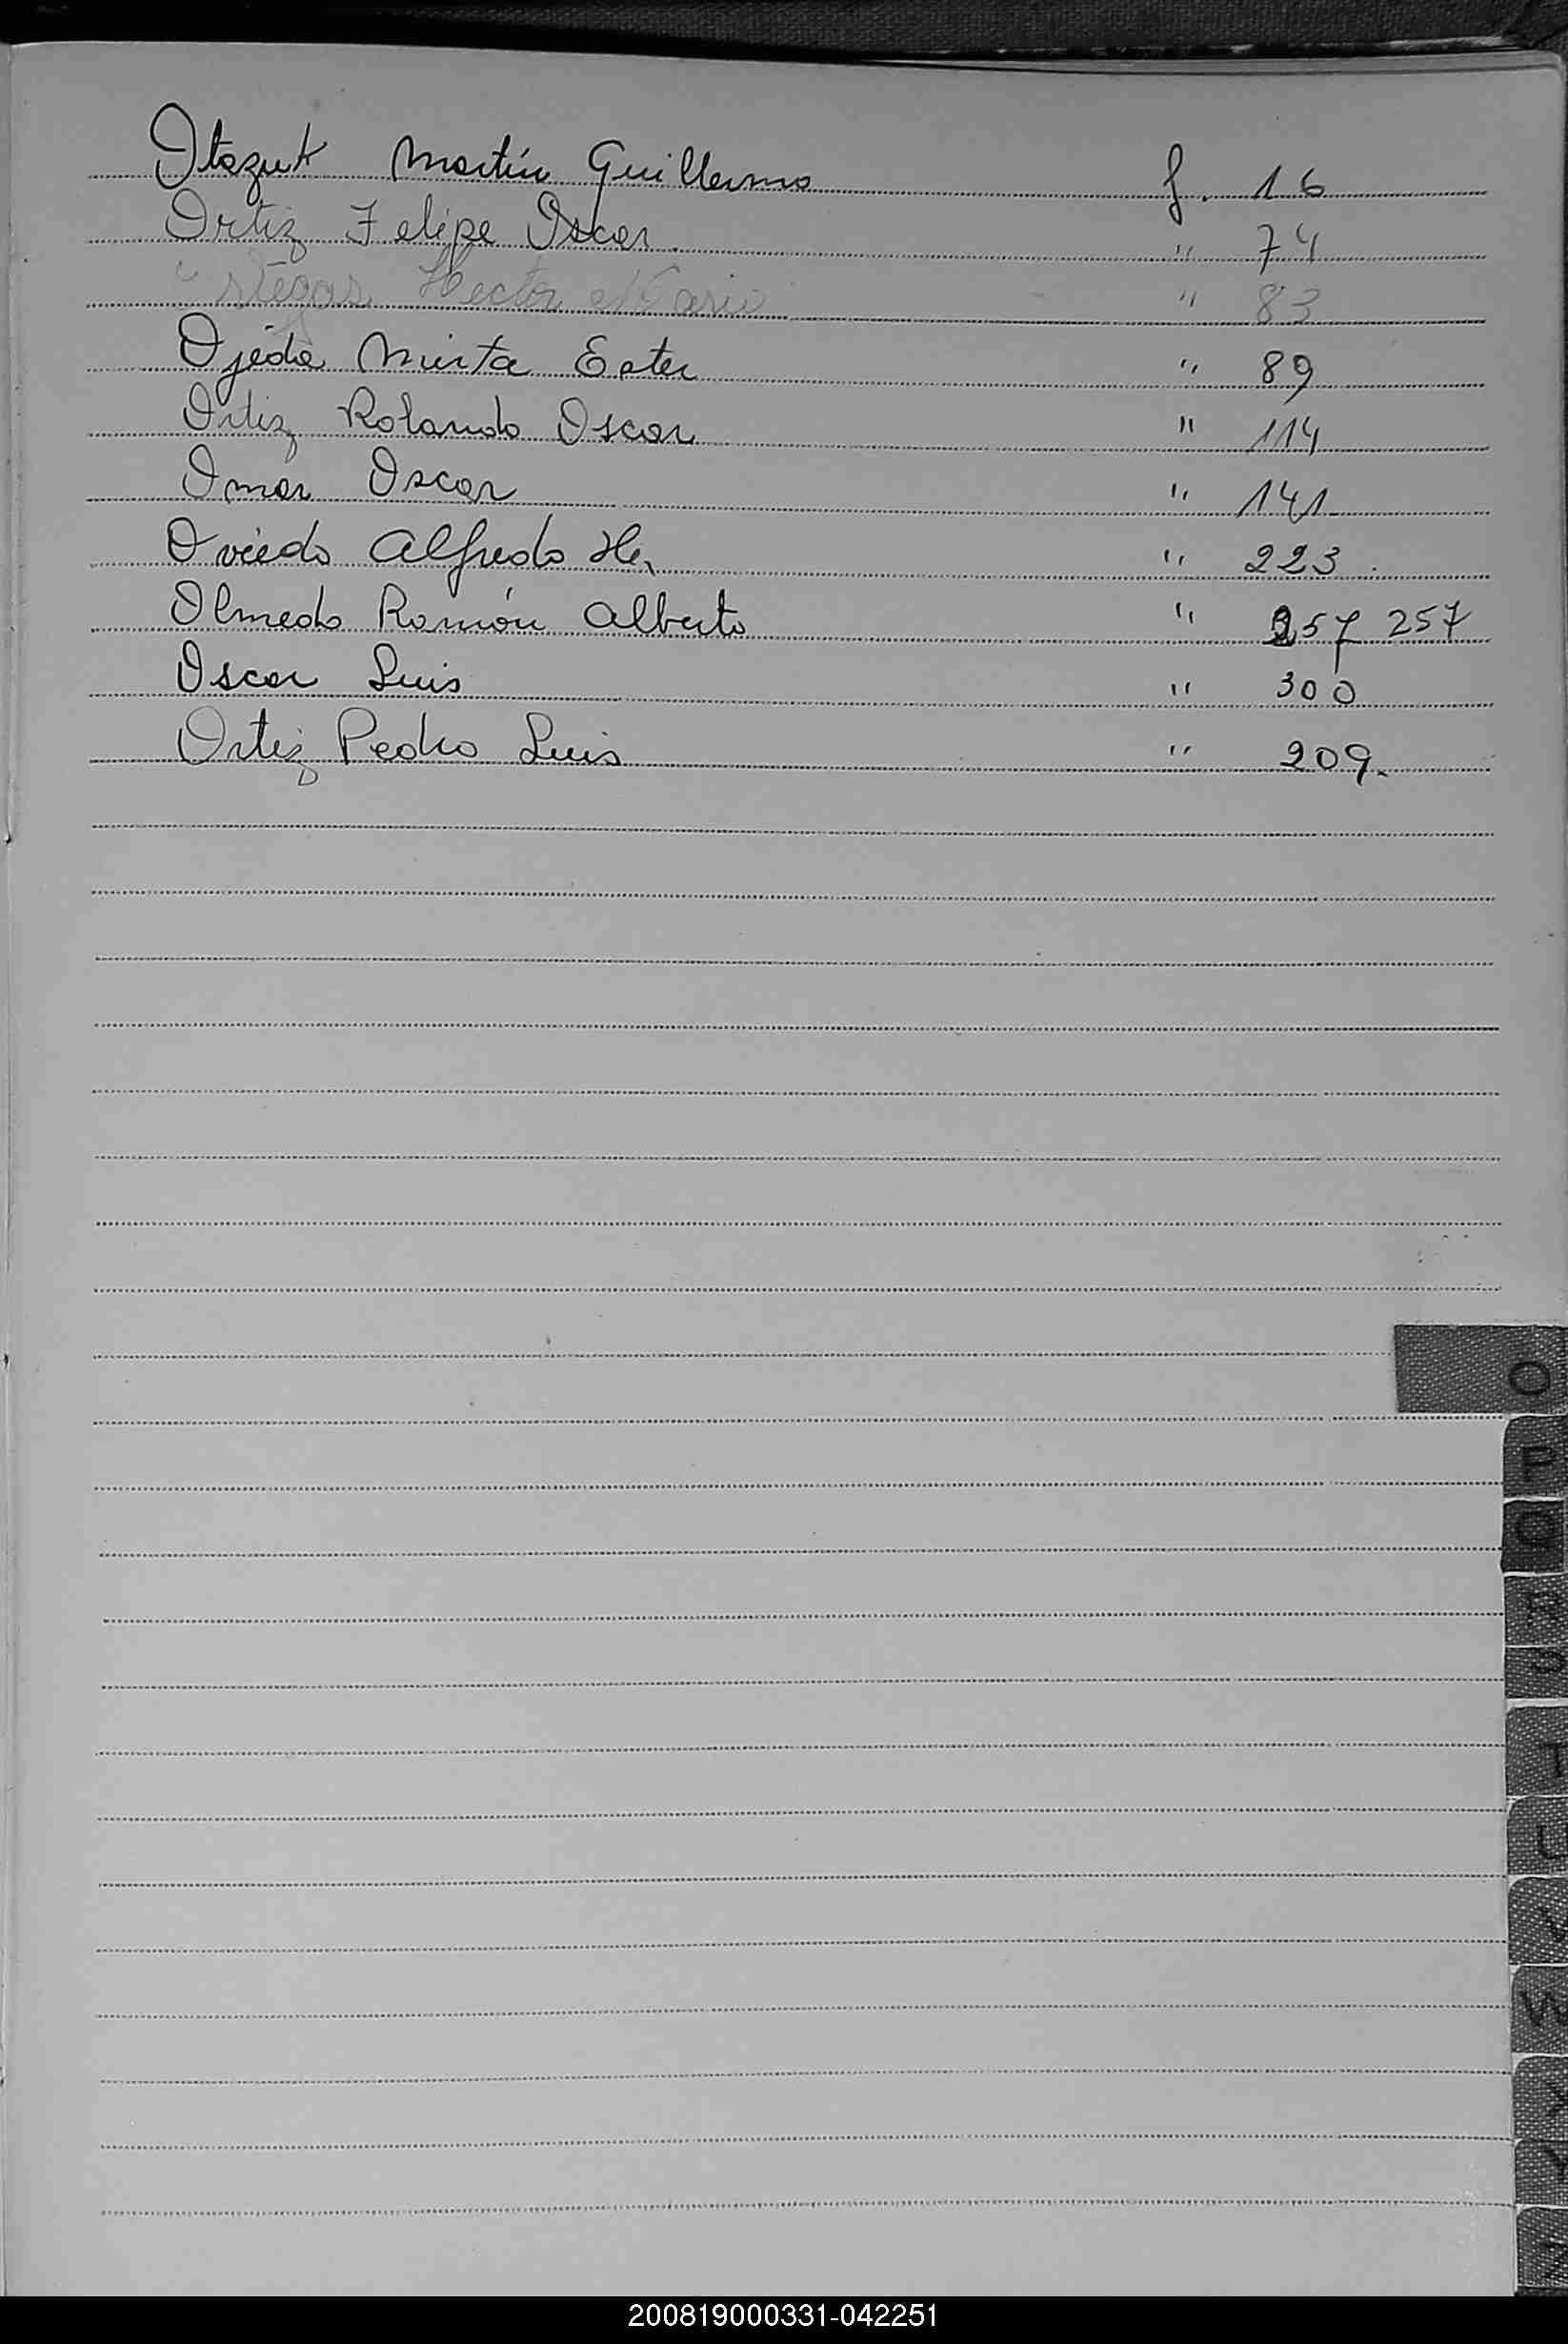 Otazuk Martín Guillermo f. 16
Ortiz Felipe Oscar. " 74
Hector Mario " 83
Ojeda Mirta Ester " 89
Ortiz Rolando Oscar " 114
Omar Oscar " 141
Oviedo Alfredo He. " 223.
Olmedo Ramón Alberto " 257 257
Oscar Luis " 300
Ortiz Pedro Luis " 209.
O
P
Q
R
S
T
U
V
W
X
Y
Z
200819000331-042251